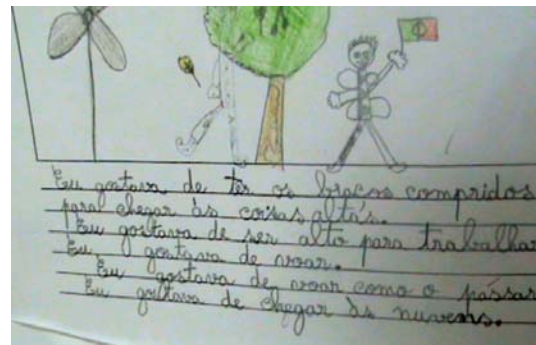 Eu gostava de ter os braços compridos
para chegar às coisas altas.
Eu gostava de ser alto para trabalhar
Eu gostava de voar.
Eu gostava de voar como o pássar
Eu gostava de chegar às nuvens.